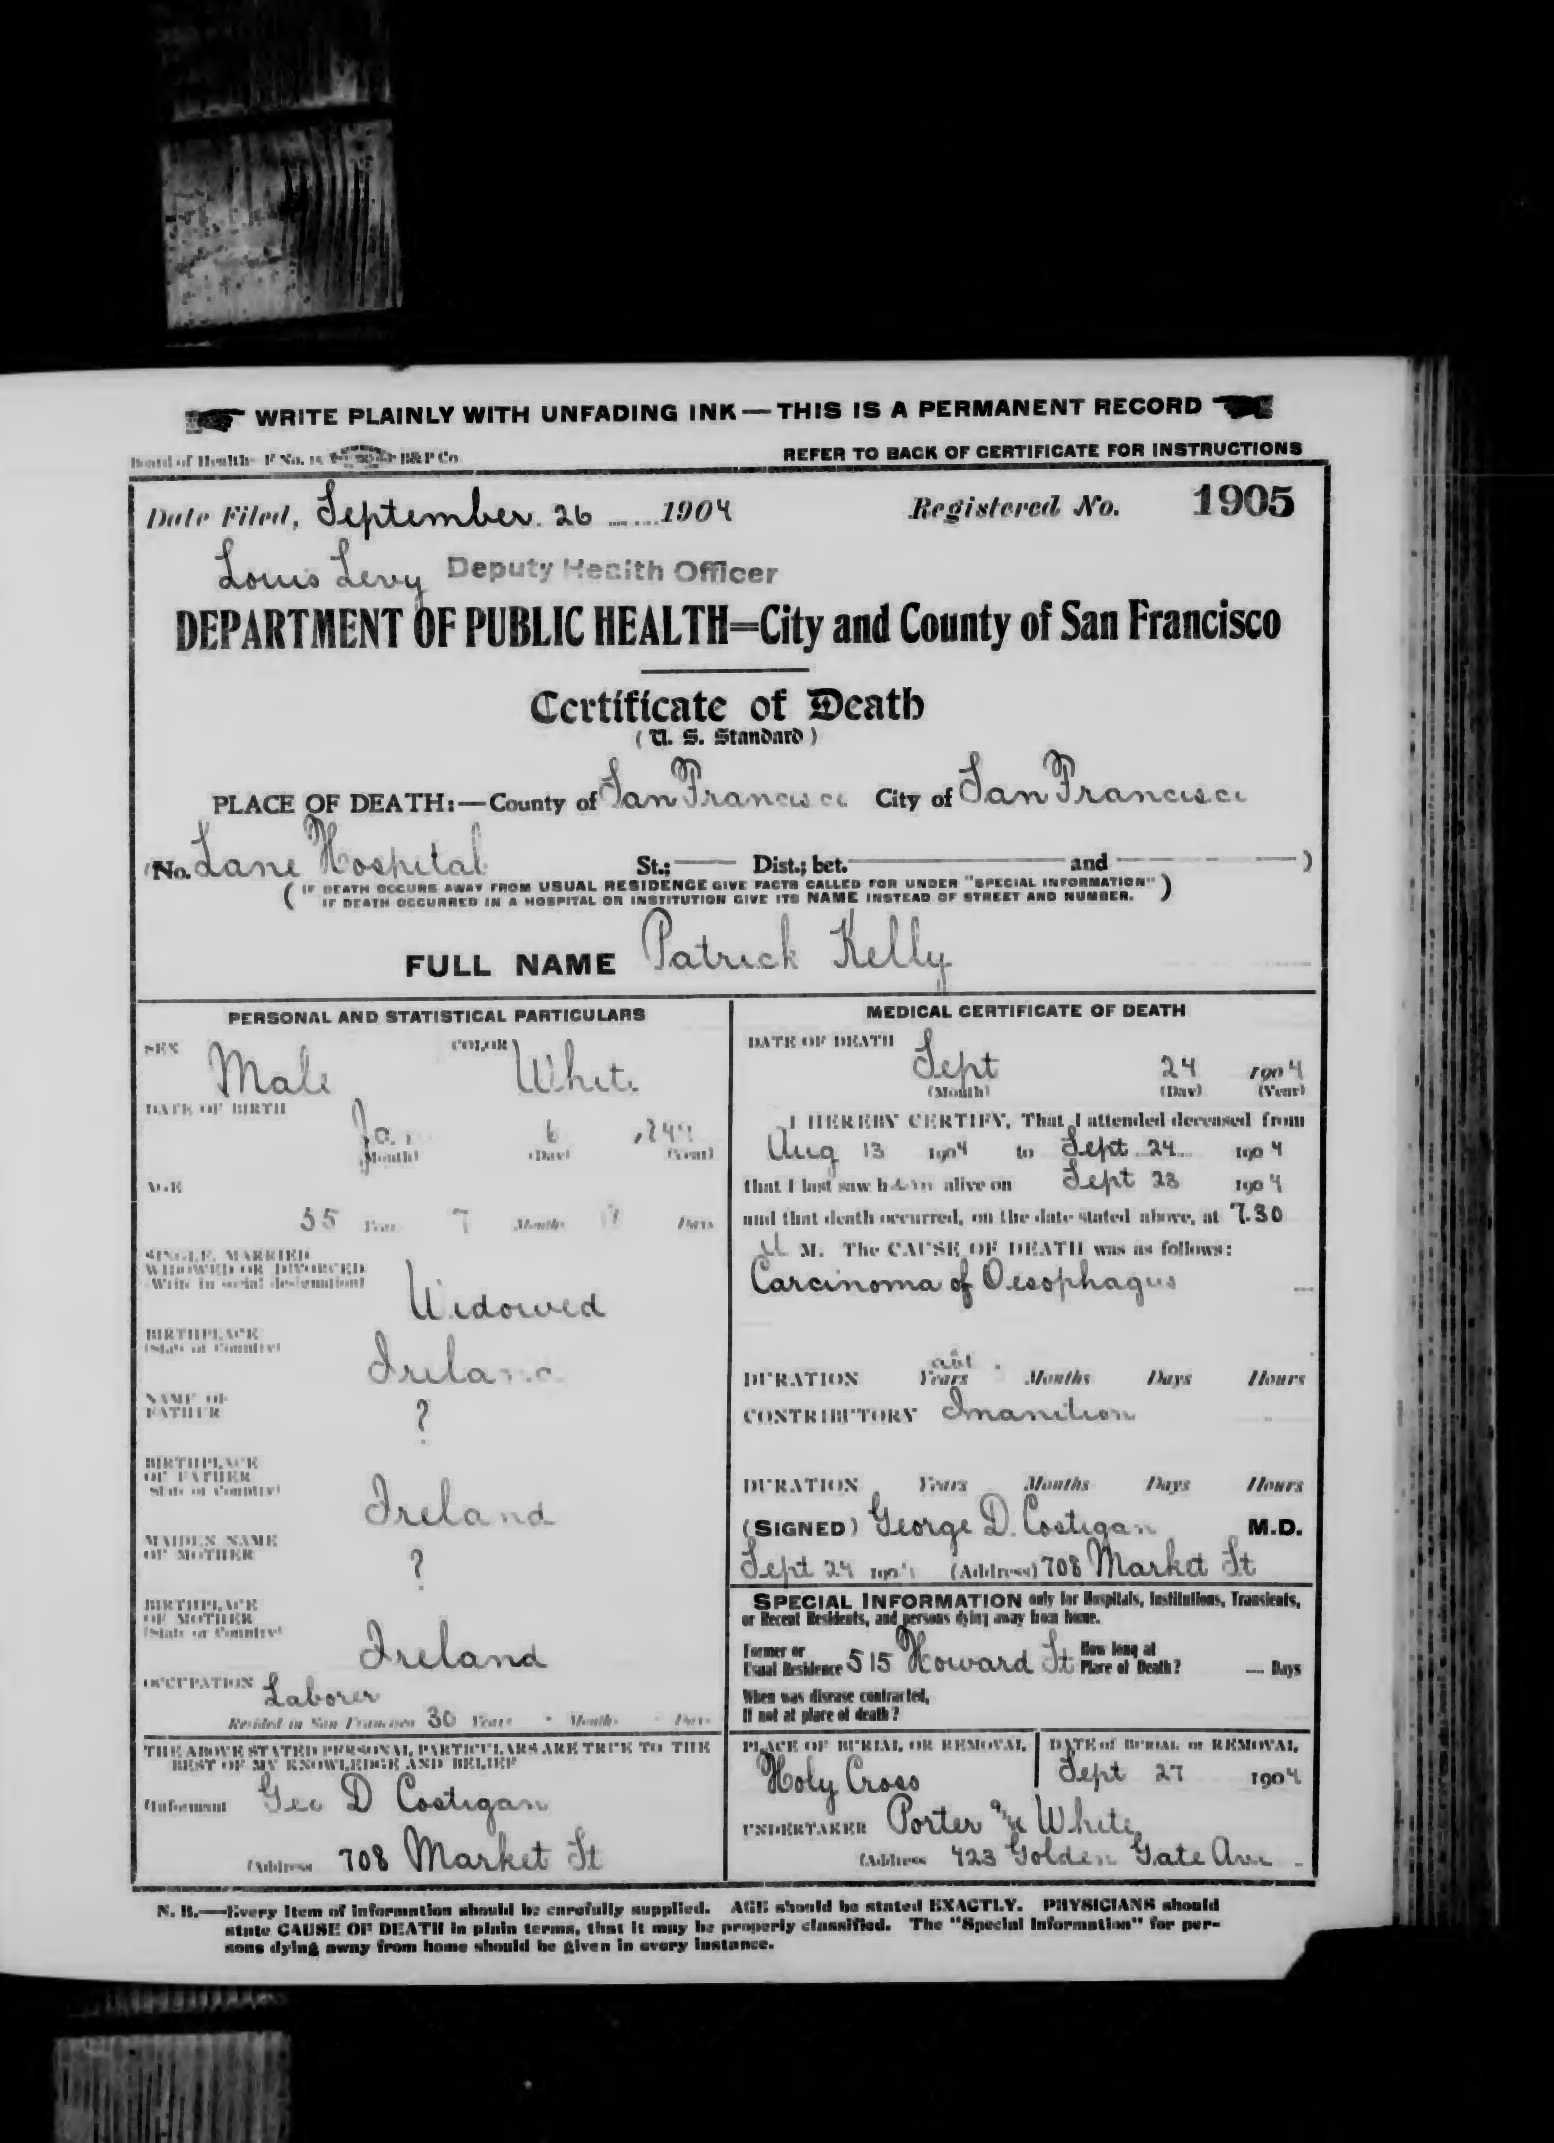 WRITE PLAINLY WITH UNFADING INK — THIS IS A PERMANENT RECORD
Board of Health F No. 15 B&P Co
REFER TO BACK OF CERTIFICATE FOR INSTRUCTIONS
Date Filed, September 26 1904 Registered No. 1905
Louis Levy Deputy Health Officer
DEPARTMENT OF PUBLIC HEALTH=City and County of San Francisco
Certificate of Death
(U. S. Standard)
PLACE OF DEATH:—County of San Francisco City of San Francisco
(No. Lane Hospital St.; Dist.; bet. and )
(IF DEATH OCCURS AWAY FROM USUAL RESIDENCE GIVE FACTS CALLED FOR UNDER "SPECIAL INFORMATION"
IF DEATH OCCURRED IN A HOSPITAL OR INSTITUTION GIVE ITS NAME INSTEAD OF STREET AND NUMBER.)
FULL NAME Patrick Kelly
PERSONAL AND STATISTICAL PARTICULARS
SEX Male COLOR White
DATE OF BIRTH
Jan 6
(Month) (Day) (Year)
AGE
55 Years 7 Months Days
SINGLE, MARRIED
WIDOWED OR DIVORCED
(Write in social designation)
Widowed
BIRTHPLACE
(State or Country)
Ireland
NAME OF
FATHER
?
BIRTHPLACE
OF FATHER
(State or Country)
Ireland
MAIDEN NAME
OF MOTHER
?
BIRTHPLACE
OF MOTHER
(State or Country)
Ireland
OCCUPATION Laborer
Resided in San Francisco 30 Years Months Days
THE ABOVE STATED PERSONAL PARTICULARS ARE TRUE TO THE
BEST OF MY KNOWLEDGE AND BELIEF
(Informant Geo D Costigan
(Address 708 Market St
MEDICAL CERTIFICATE OF DEATH
DATE OF DEATH
Sept 24 1904
(Month) (Day) (Year)
I HEREBY CERTIFY, That I attended deceased from
Aug 13 1904 to Sept 24 1904
that I last saw him alive on Sept 23 1904
and that death occurred, on the date stated above, at 7.30
M. The CAUSE OF DEATH was as follows:
Carcinoma of Oesophagus
DURATION Years Months Days Hours
CONTRIBUTORY Inanition
DURATION Years Months Days Hours
(SIGNED) George D. Costigan M.D.
Sept 24 1904 (Address) 708 Market St
SPECIAL INFORMATION only for Hospitals, Institutions, Transients,
or Recent Residents, and persons dying away from home.
Former or
Usual Residence 515 Howard St How long at
Place of Death? — Days
When was disease contracted,
If not at place of death?
PLACE OF BURIAL OR REMOVAL DATE of BURIAL or REMOVAL
Holy Cross Sept 27 1904
UNDERTAKER Porter & White
(Address 423 Golden Gate Ave
N. B.—Every Item of information should be carefully supplied. AGE should be stated EXACTLY. PHYSICIANS should
state CAUSE OF DEATH in plain terms, that it may be properly classified. The "Special Information" for per-
sons dying away from home should be given in every instance.